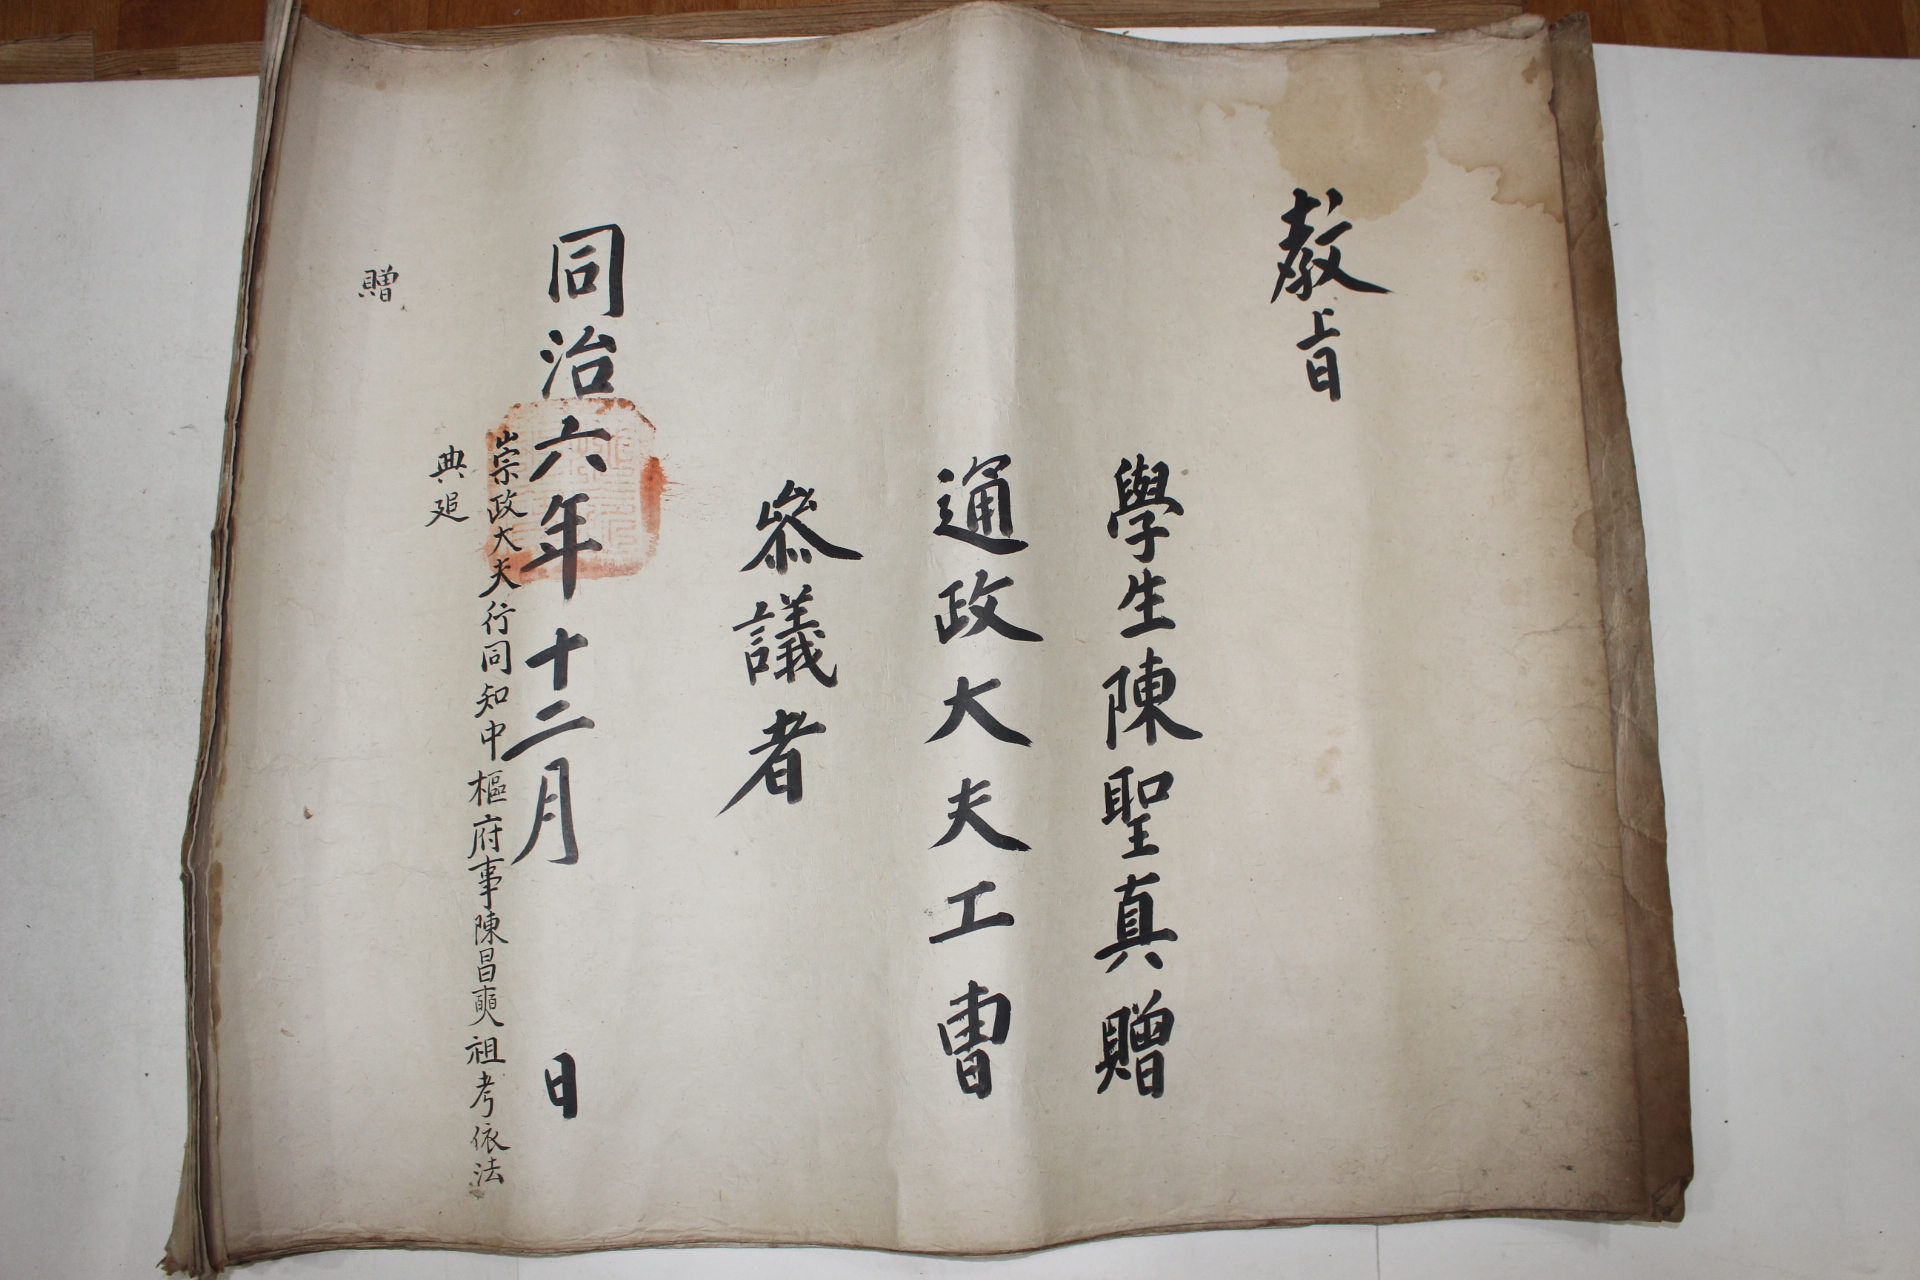 敎旨
學生陳聖真贈
通政大夫工曺
叅議者
同治六年十二月 日
崇政大夫行同知中樞府事陳昌奭祖考依法
典追
贈